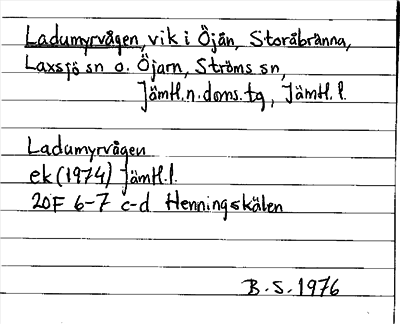 Ladumyrvågen, vik i Öjån, Storåbränna,
Laxsjö sn o. Öjarn, Ströms sn,
Jämtl.n.doms.tg, Jämtl.l.
Ladumyrvågen
ek (1974) Jämtl.l.
20F 6-7 c-d Henningskälen
B.S. 1976